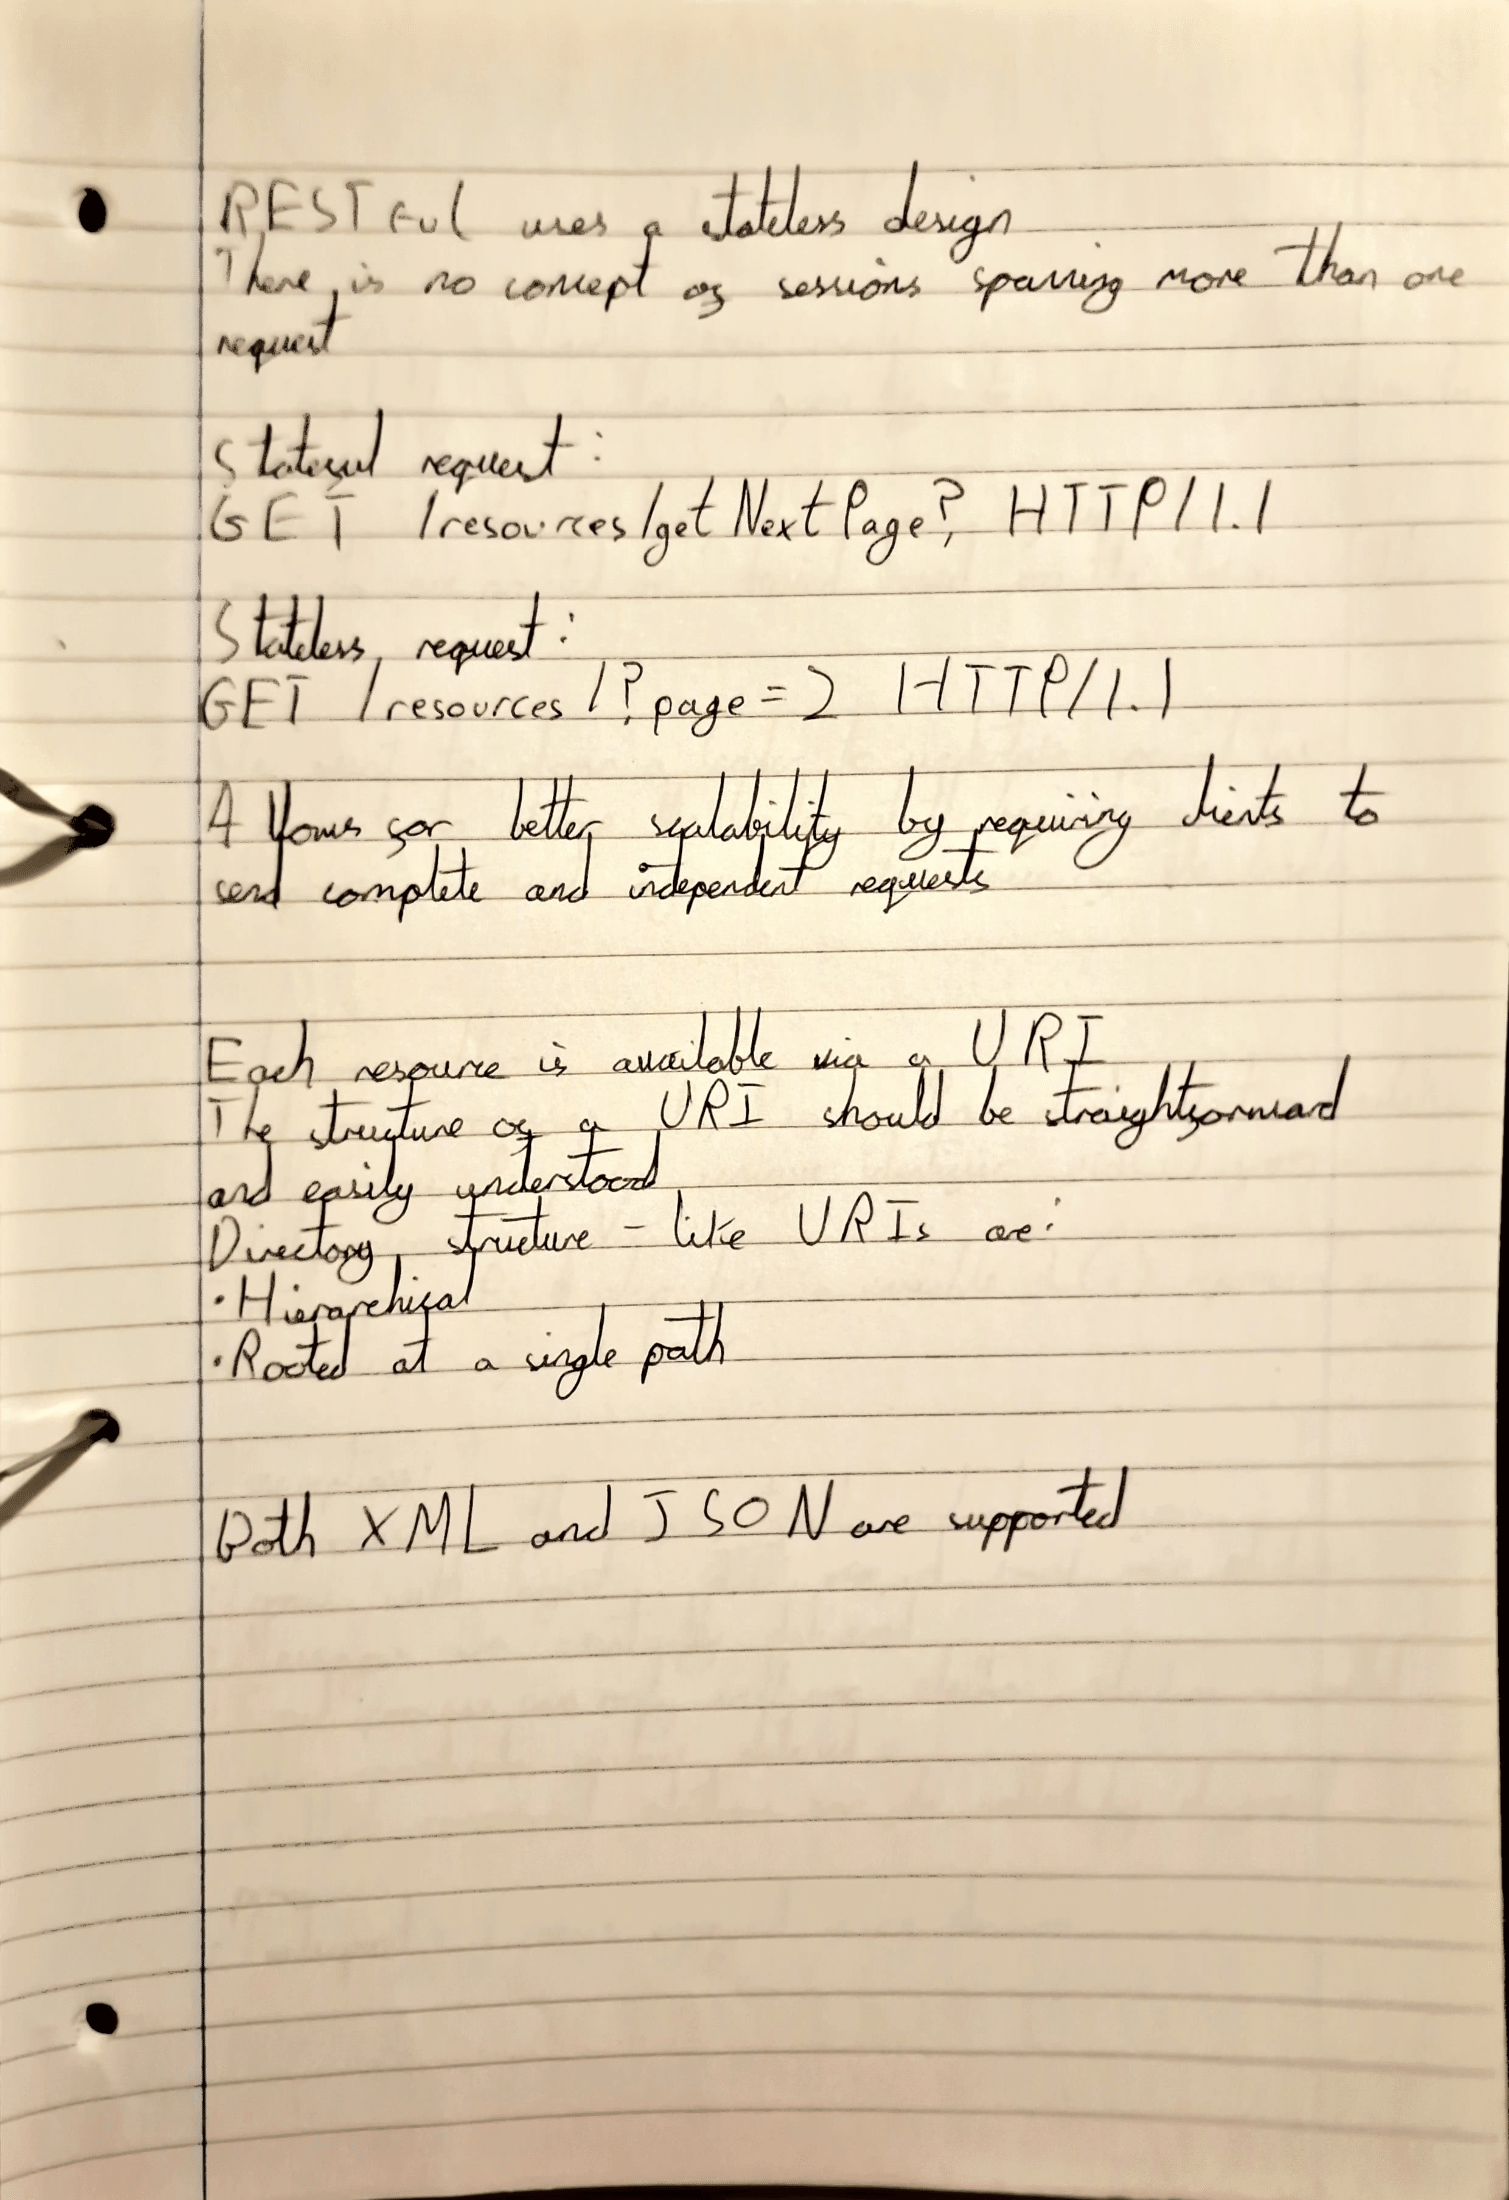 RESTful uses a stateless design
There is no concept of sessions spanning more than one
request
Stateful request:
GET /resources/getNextPage? HTTP/1.1
Stateless request:
GET /resources/?page=2 HTTP/1.1
Allows for better scalability by requiring clients to
send complete and independent requests
Each resource is available via a URI
The structure of a URI should be straightforward
and easily understood
Directory structure-like URIs are:
• Hierarchical
• Rooted at a single path
Both XML and JSON are supported